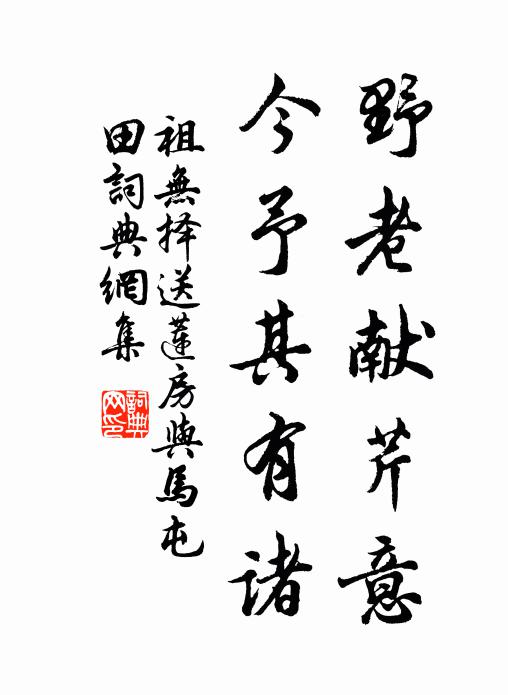 野老献芹意
今予其有诸
祖無择送蓮房與馬屯
田詞典網集
詞典
网印